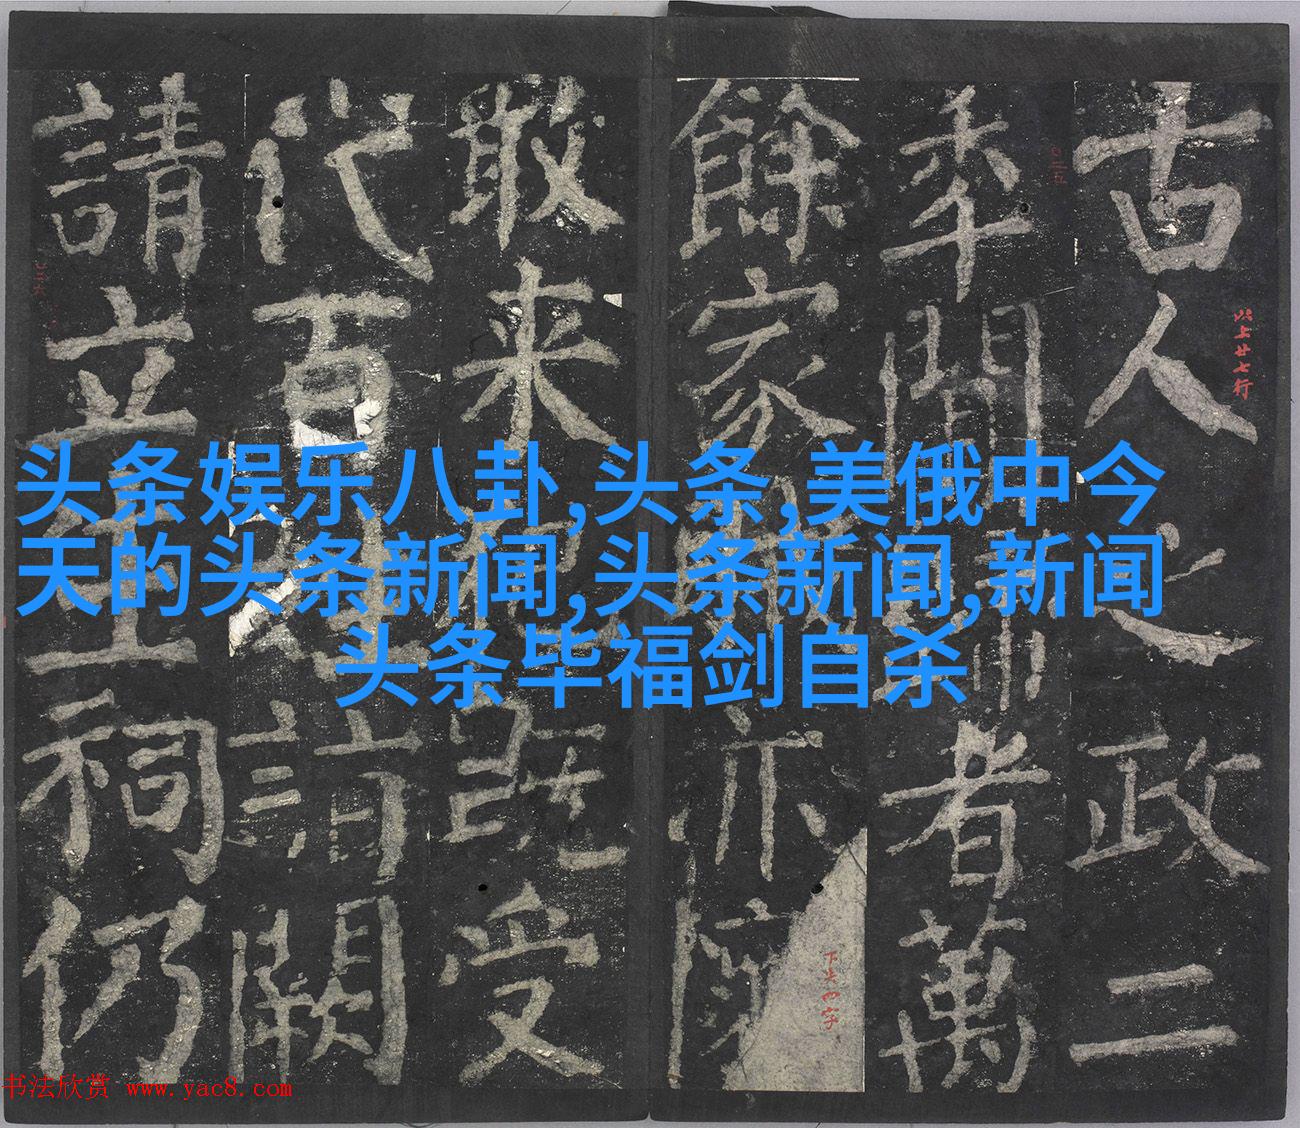 古人之政二
年間歸者萬
餘家賊亦懷
敢来犯既受
代百姓詣闕
請立生祠仍
以上廿七行
下失四字
头条娱乐八卦,头条,美俄中今
天的头条新闻,头条新闻,新闻
头条毕福剑自杀
书法欣赏 www.yac8.com